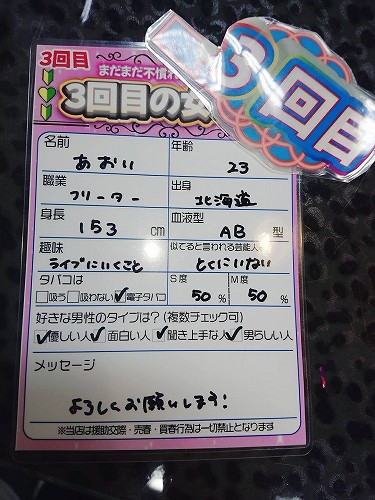 3回目
まだまだ不慣れ
3回目の女
3回目
名前
あおい
年齢
23
職業
フリーター
出身
北海道
身長
153 cm
血液型
AB 型
趣味
ライブにいくこと
似てると言われる芸能人
とくにいない
タバコは
□吸う □吸わない ☑電子タバコ
S度
50 %
M度
50 %
好きな男性のタイプは?(複数チェック可)
☑優しい人 ☑面白い人 ☑聞き上手な人 ☑男らしい人
メッセージ
よろしくお願いします!
※当店は援助交際・売春・買春行為は一切禁止となります